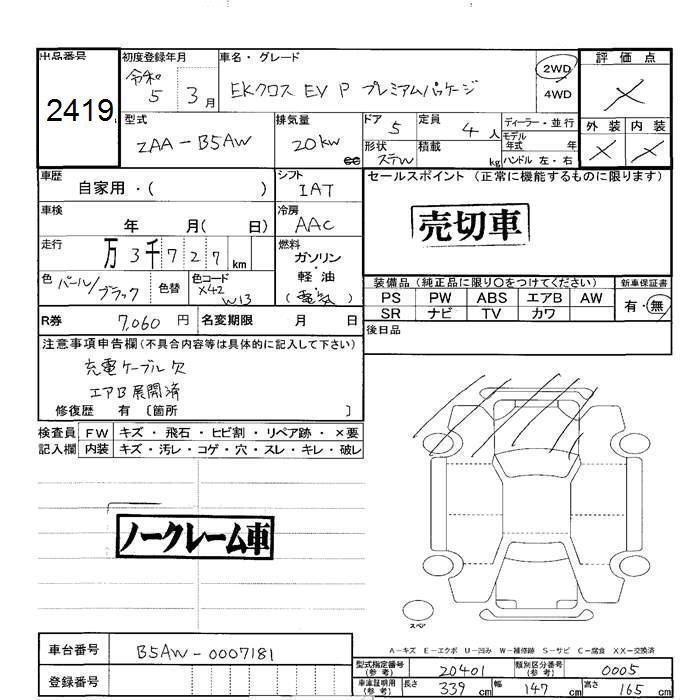 出品番号 初度登録年月 車名・グレード 評価点
2419 令和 5 3月 EKクロス EV P プレミアムパッケージ 2WD 4WD ×
型式 排気量 ドア 定員 ディーラー・並行 外装 内装
ZAA-B5AW 20kw cc 5 4人 モデル年式 年 × ×
形状 ステW 積載 kg ハンドル 左・右
車歴 自家用・( ) シフト IAT セールスポイント (正常に機能するものに限ります)
車検 年 月( 日) 冷房 AAC 売切車
走行 万 3千 727 km 燃料 ガソリン・軽油・(電気)
色 パール/ブラック 色替 色コード X42 W13
装備品 (純正品に限り○をつけてください) 新車保証書
PS PW ABS エアB AW 有・無
SR ナビ TV カワ
R券 7,060 円 名変期限 月 日 後日品
注意事項申告欄(不具合内容等は具体的に記入して下さい)
充電ケーブル欠
エアB展開済
修復歴 有 〔箇所 〕
検査員記入欄 FW キズ・飛石・ヒビ割・リペア跡・×要
内装 キズ・汚レ・コゲ・穴・スレ・キレ・破レ
ノークレーム車
スペア
A-キズ E-エクボ U-凹み W-補修跡 S-サビ C-腐食 XX-交換済
車台番号 B5AW-0007181
登録番号
型式指定番号(参考) 20401 類別区分番号(参考) 0005
車庫証明用(参考) 長さ 339 cm 幅 147 cm 高さ 165 cm